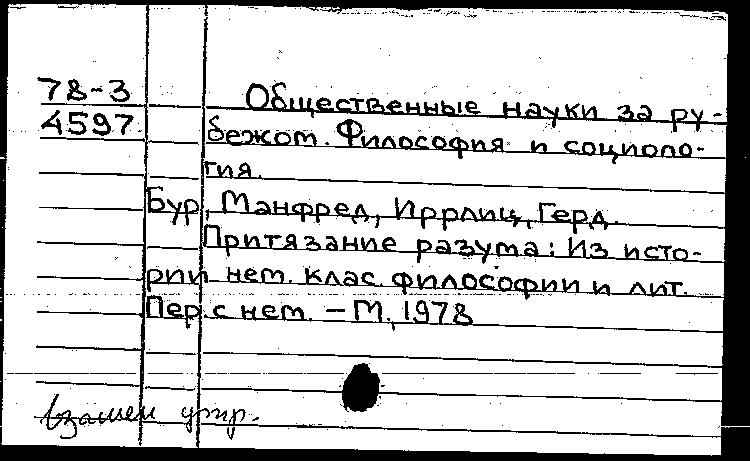 78-3 Общественные науки за ру-
4597 бежом. Философия и социоло-
гия.
Бур, Манфред, Иррлиц, Герд.
Притязание разума: Из исто-
рии нем. клас. философии и лит.
Пер. с нем. – М., 1978
взамен